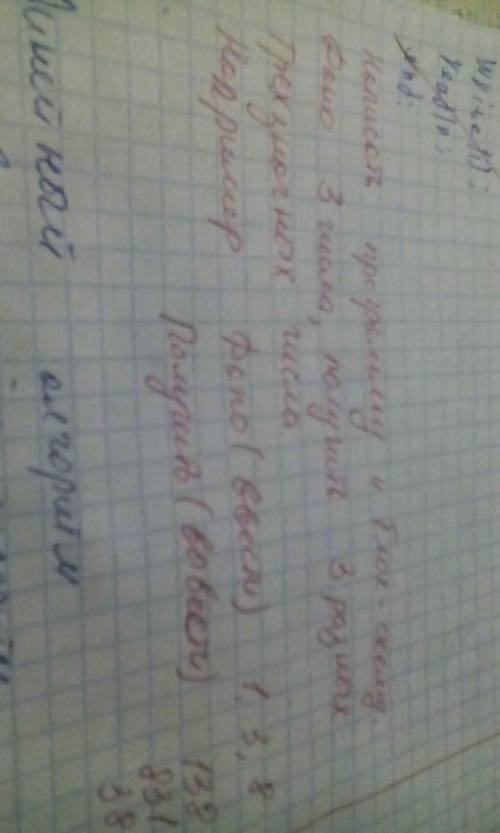 Write(f);
readln;
end.
Написать программу и блок-схему.
Дано 3 числа, получить 3 разных
трехзначных числа
Например Дано (ввести) 1, 3, 8
Получить (вывести) 138
831
38
Линейный алгоритм